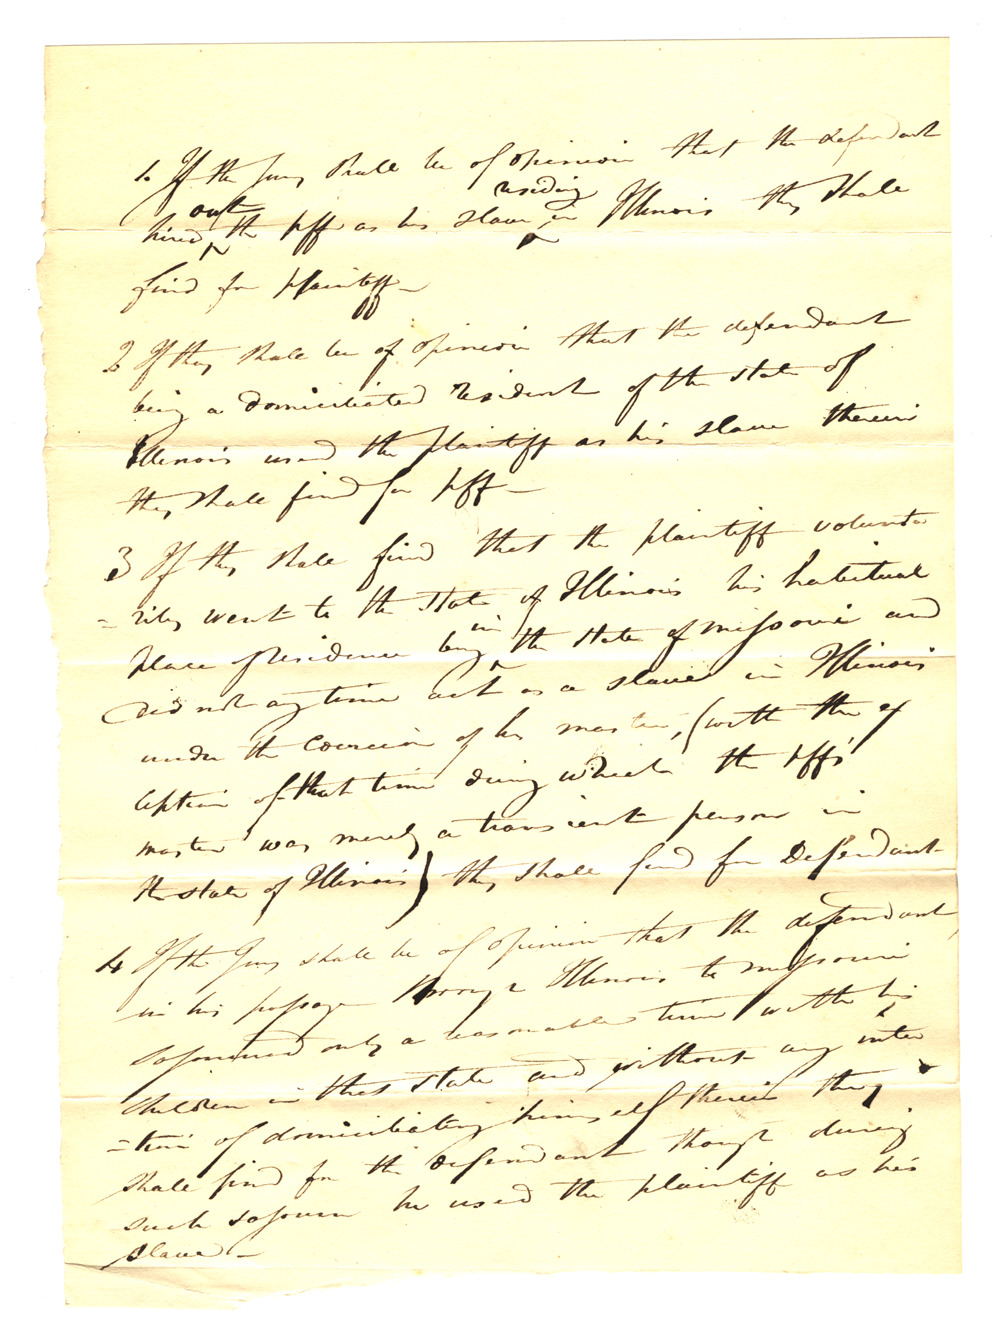 1. If the Jury shall be of opinion that the defendant
hired out the plff as his slave residing in Illinois they shall
find for plaintiff—
2 If they shall be of opinion that the defendant
being a domiciliated resident of the state of
Illinois used the plaintiff as his slave therein
they shall find for plff—
3 If they shall find that the plaintiff volunta
=rily went to the state of Illinois his habitual
place of residence being in the state of missouri and
did not any time act as a slave in Illinois
under the coercion of his master, (with the ex
ception of that time during which the plff's
master was merely a transient person in
the state of Illinois) they shall find for Defendant
4 If the Jury shall be of opinion that the defendant,
in his passage through Illinois to missouri
sojourned only a reasonable time with his
children in that state and without any inten
=tion of domiciliating himself therein they
shall find for the defendant though during
such sojourn he used the plaintiff as his
slave—